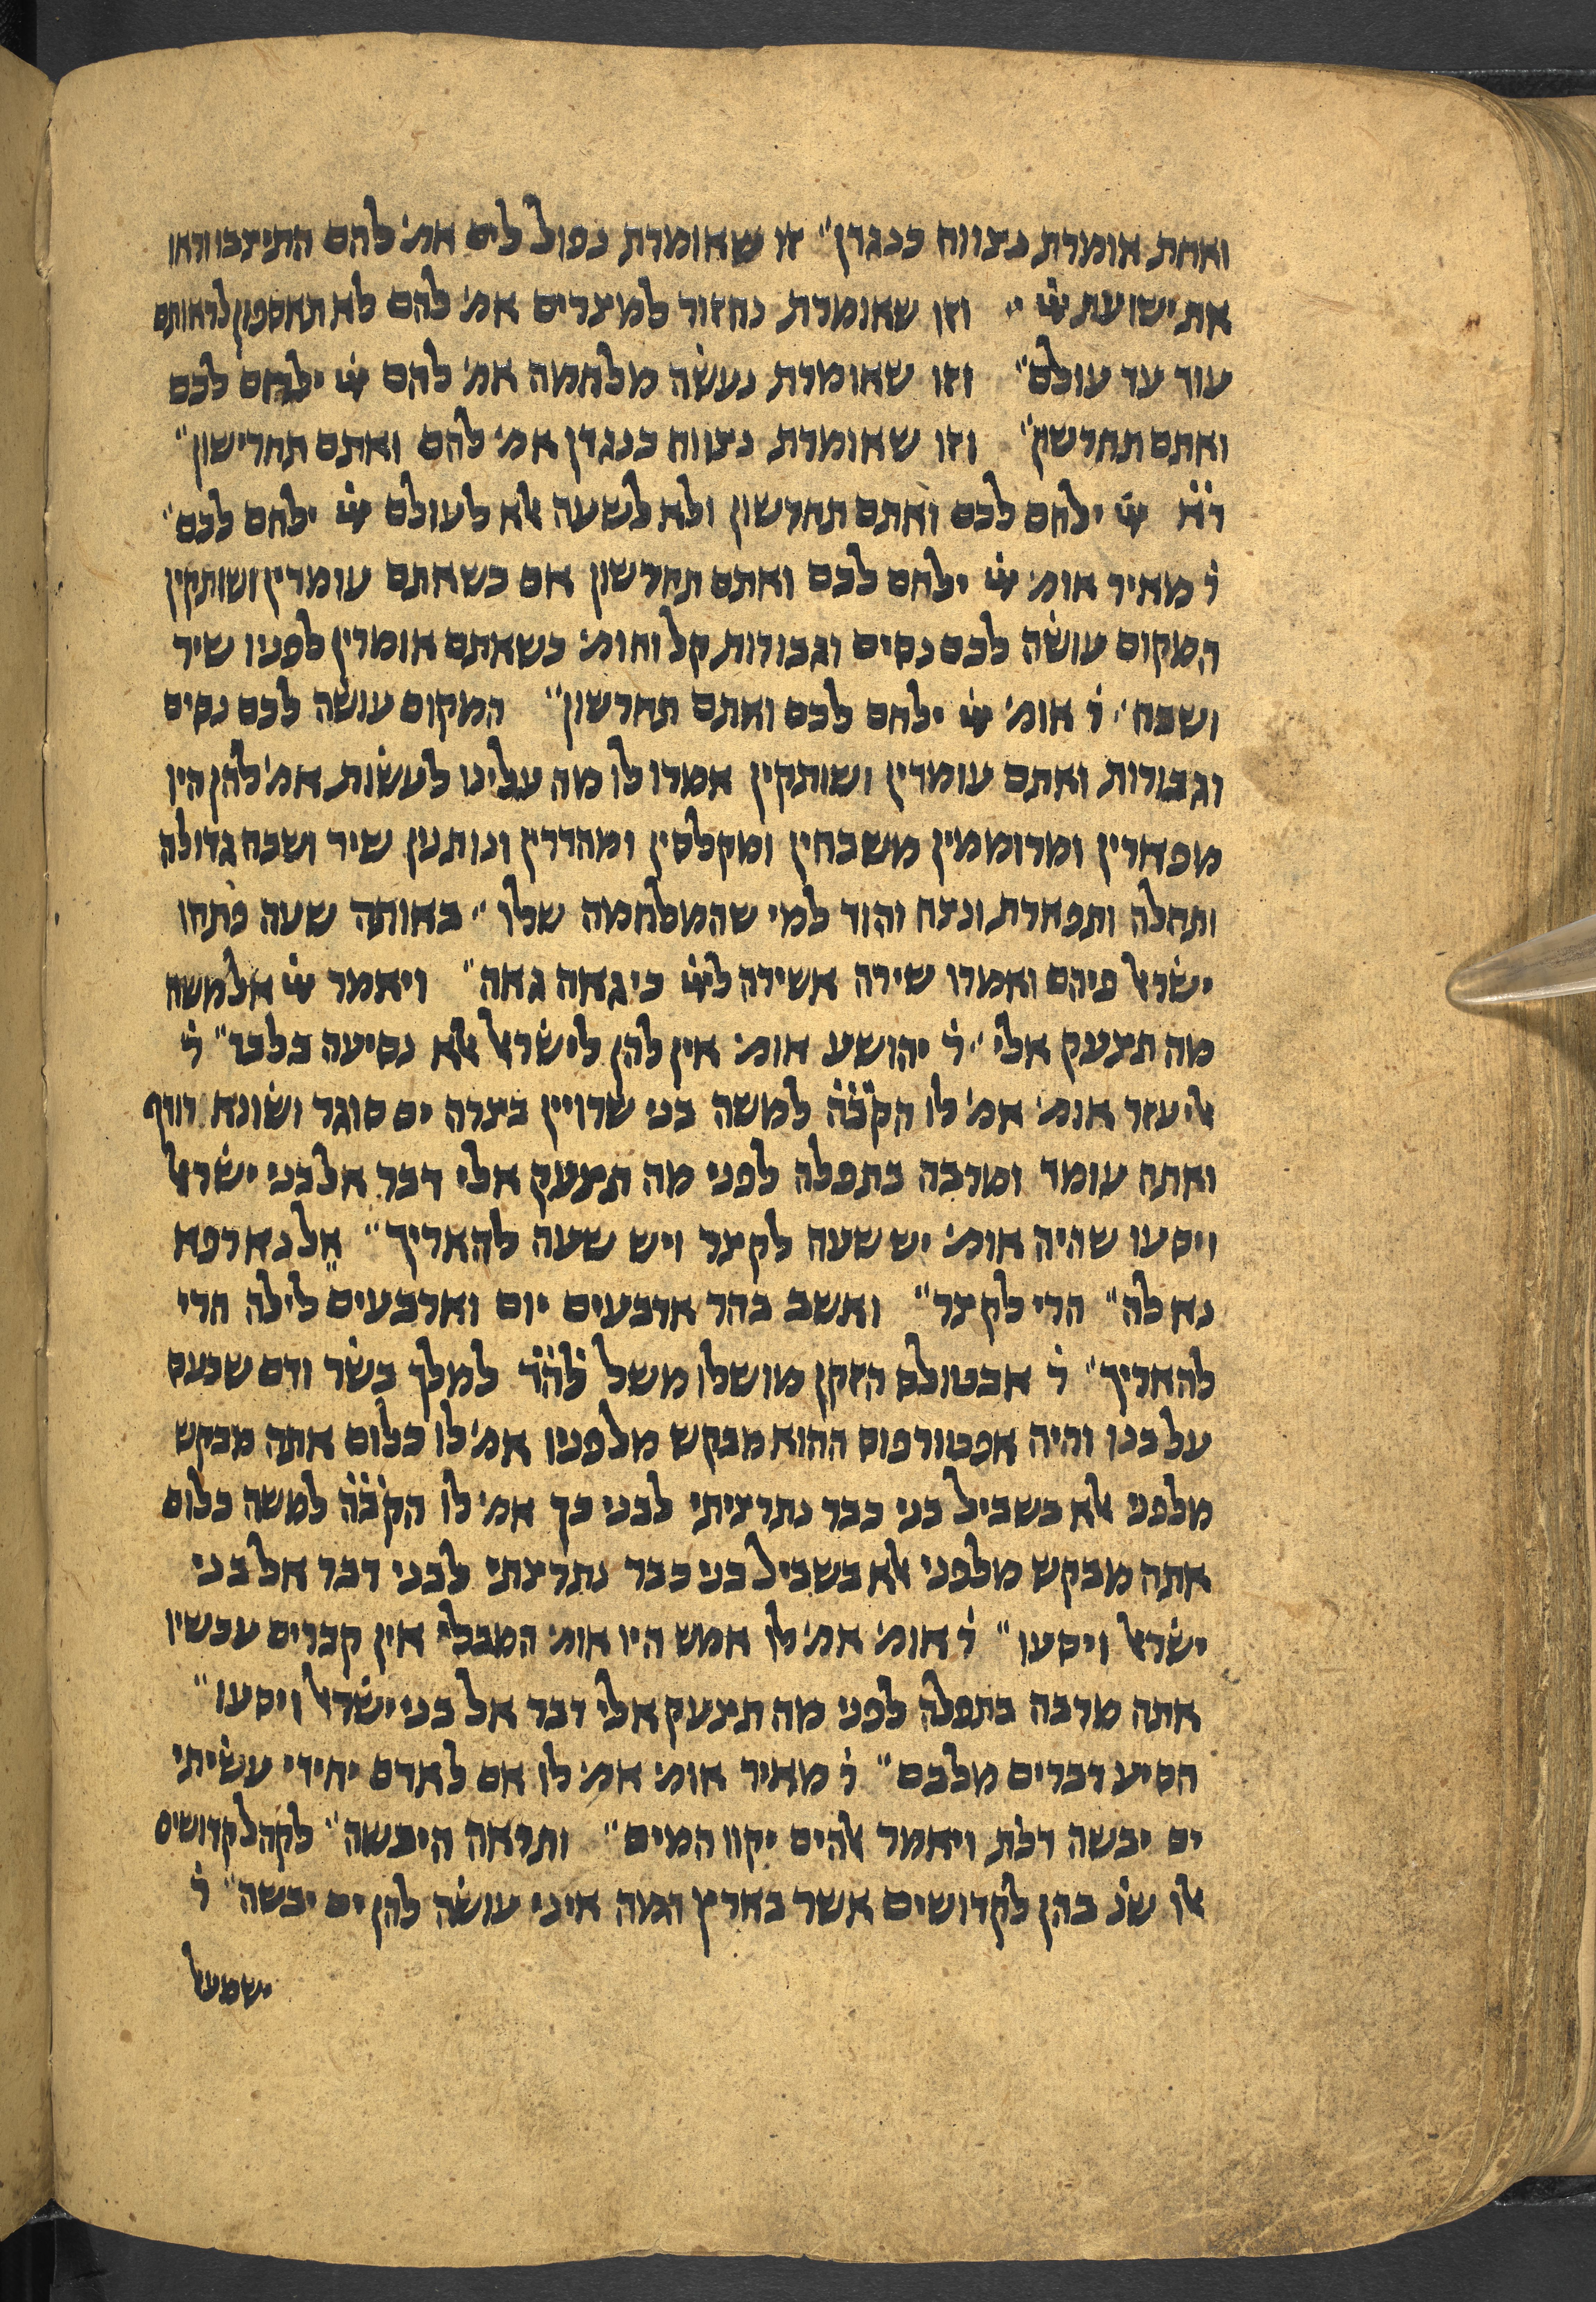 ואחת אומרת נצווח כנגדן" זו שאומרת נפול לים אמ' להם התיצבו וראו
את ישועת יי " וזו שאומרת נחזור למצרים אמ' להם לא תאספון לראותם
עוד עד עולם" וזו שאומרת נעשה מלחמה אמ' להם יי ילחם לכם
ואתם תחרשון" וזו שאומרת נצווח כנגדן אמ' להם ואתם תחרישון"
ד'א' יי ילחם לכם ואתם תחרשון ולא לשעה אלא לעולם יי ילחם לכם"
ר' מאיר אומ' יי ילחם לכם ואתם תחרשון אם כשאתם עומדין ושותקין
המקום עושה לכם נסים וגבורות קל וחומ' כשאתם אומרין לפניו שיר
ושבח" ר' אומ' יי ילחם לכם ואתם תחרשון" המקום עושה לכם נסים
וגבורות ואתם עומדין ושותקין אמרו לו מה עלינו לעשות אמ' להן היו
מפארין ומרוממין משבחין ומקלסין ומהדרין ונותנין שיר ושבח גדולה
ותהלה ותפארת ונצח והוד למי שהמלחמה שלו" באותה שעה פתחו
ישראל פיהם ואמרו שירה אשירה ליי כי גאה גאה" ויאמר יי אל משה
מה תצעק אלי" ר' יהושע אומ' אין להן לישראל אלא נסיעה בלבד" ר'
אליעזר אומ' אמ' לו הק'ב'ה' למשה בני שרויין בצרה ים סוגר ושונא רודף
ואתה עומד ומרבה בתפלה לפני מה תצעק אלי דבר אל בני ישראל
ויסעו שהיה אומ' יש שעה לקצר ויש שעה להאריך" אל נא רפא
נא לה" הרי לקצר" ואשב בהר ארבעים יום וארבעים לילה הרי
להאריך" ר' אבטולס הזקן מושלו משל ל'ה'ד' למלך בשר ודם שכעס
על בנו והיה אפטורפוס ההוא מבקש מלפניו אמ' לו כלום אתה מבקש
מלפני אלא בשביל בני כבר נתרציתי לבני כך אמ' לו הק'ב'ה' למשה כלום
אתה מבקש מלפני אלא בשביל בני כבר נתרצתי לבני דבר אל בני
ישראל ויסעו" ר' אומ' אמ' לו אמש היו אומ' המבלי אין קברים עכשיו
אתה מרבה בתפלה לפני מה תצעק אלי דבר אל בני ישראל ויסעו"
הסיע דברים מלבם" ר' מאיר אומ' אמ' לו אם לאדם יחידי עשיתי
ים יבשה דכת ויאמר אלהים יקוו המים" ותראה היבשה" לקהל קדושים
אלו שנ' בהן לקדושים אשר בארץ המה איני עושה להן ים יבשה" ר'
ישמעאל